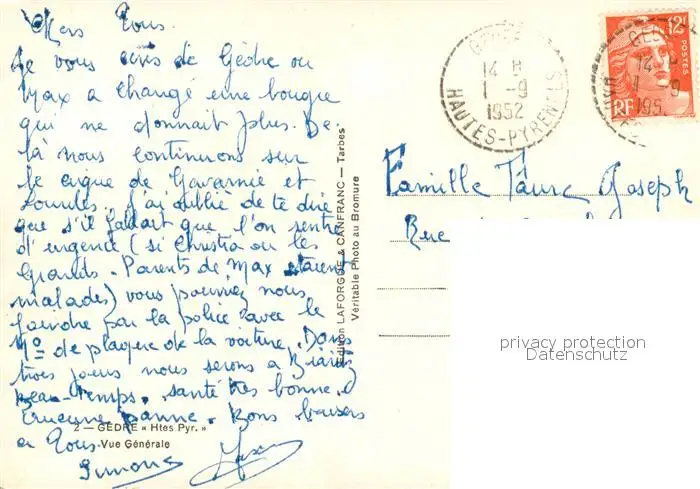 Chers Tous.
Je vous écris de Gèdre ou
Max a changé une bougie
qui ne donnait plus. De
là nous continuons sur
le cirque de Gavarnie et
Lourdes. J'ai oublié de te dire
que s'il fallait que l'on rentre
d'urgence (si Christia ou les
Grands. Parents de Max étaient
malades) vous pourriez nous
joindre par la police avec le
No de plaque de la voiture. Dans
trois jours nous serons a Biarritz
Beau-Temps. santé très bonne.
Aucune panne. Bons baisers
a Tous
Simone Max
2 — GÈDRE « Htes Pyr. »
Vue Générale
Edition LAFORGUE & CANFRANC — Tarbes
Véritable Photo au Bromure
GEDRE
14 H
1 - 9
1952
HAUTES-PYRENEES
12F
POSTES
RF
GEDRE
14 H
1 - 9
195
Famille Faure Joseph
Rue
privacy protection
Datenschutz